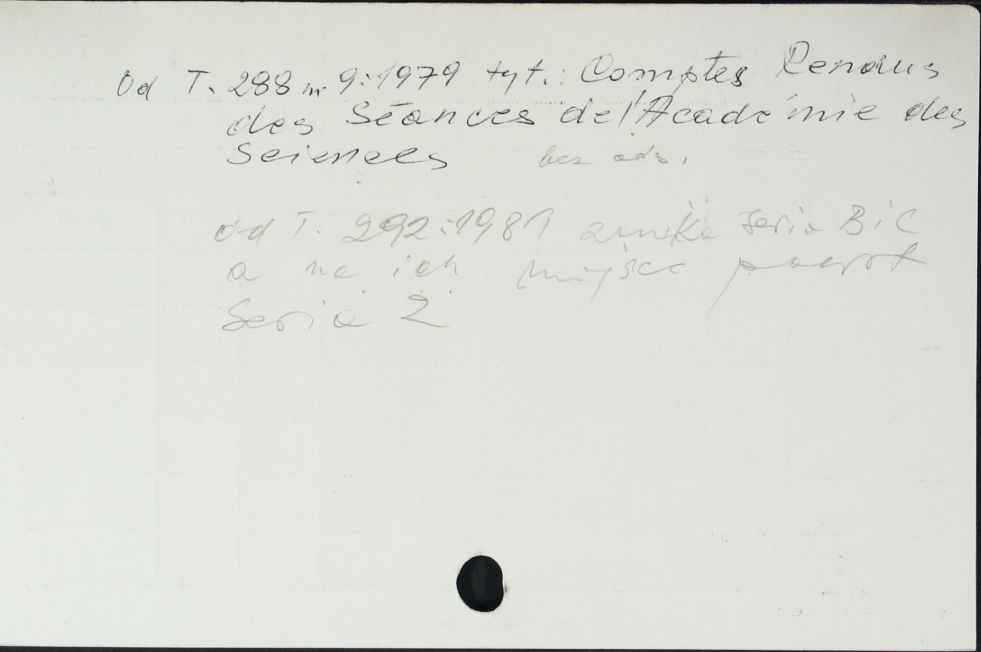 Od T. 288 nr 9:1979 tyt.: Comptes Rendus
des Séances de l'Académie des
Sciences bez ods.
Od T. 292:1981 znika seria B i C
a na ich miejsce powst
Seria 2